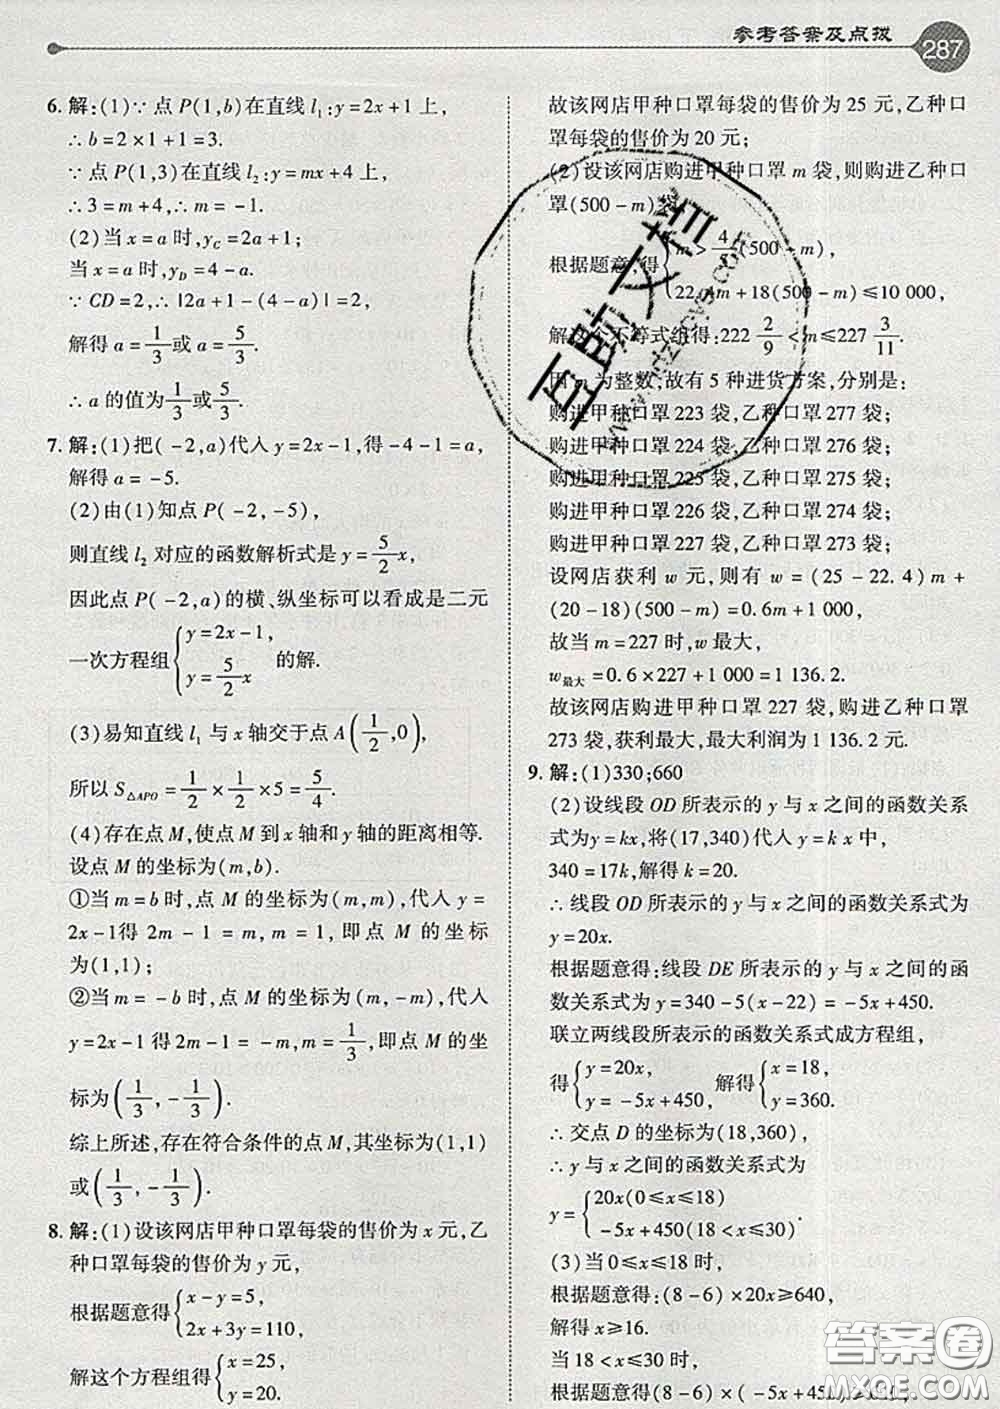 参考答案及点拨
287
6. 解:(1)∵点P(1,b)在直线l₁:y=2x+1上,
∴b=2×1+1=3.
∵点P(1,3)在直线l₂:y=mx+4上,
∴3=m+4,∴m=-1.
(2)当x=a时,y_C=2a+1;
当x=a时,y_D=4-a.
∵CD=2,∴|2a+1-(4-a)|=2,
解得a=1/3或a=5/3.
∴a的值为1/3或5/3.
7. 解:(1)把(-2,a)代入y=2x-1,得-4-1=a,
解得a=-5.
(2)由(1)知点P(-2,-5),
则直线l₂对应的函数解析式是y=5/2x,
因此点P(-2,a)的横、纵坐标可以看成是二元
一次方程组{y=2x-1, y=5/2x 的解.
(3)易知直线l₁与x轴交于点A(1/2,0),
所以S△APO=1/2×1/2×5=5/4.
(4)存在点M,使点M到x轴和y轴的距离相等.
设点M的坐标为(m,b).
①当m=b时,点M的坐标为(m,m),代入y=
2x-1得2m-1=m,m=1,即点M的坐标
为(1,1);
②当m=-b时,点M的坐标为(m,-m),代入
y=2x-1得2m-1=-m,m=1/3,即点M的坐
标为(1/3,-1/3).
综上所述,存在符合条件的点M,其坐标为(1,1)
或(1/3,-1/3).
8. 解:(1)设该网店甲种口罩每袋的售价为x元,乙
种口罩每袋的售价为y元,
根据题意得{x-y=5, 2x+3y=110,
解这个方程组得{x=25, y=20.
故该网店甲种口罩每袋的售价为25元,乙种口
罩每袋的售价为20元;
(2)设该网店购进甲种口罩m袋,则购进乙种口
罩(500-m)袋,
根据题意,得{m>4/5(500-m), 22.4m+18(500-m)≤10 000,
解这个不等式组得:222 2/9<m≤227 3/11.
因m为整数,故有5种进货方案,分别是:
购进甲种口罩223袋,乙种口罩277袋;
购进甲种口罩224袋,乙种口罩276袋;
购进甲种口罩225袋,乙种口罩275袋;
购进甲种口罩226袋,乙种口罩274袋;
购进甲种口罩227袋,乙种口罩273袋;
设网店获利w元,则有w=(25-22.4)m+
(20-18)(500-m)=0.6m+1 000,
故当m=227时,w最大,
w最大=0.6×227+1 000=1 136.2.
故该网店购进甲种口罩227袋,购进乙种口罩
273袋,获利最大,最大利润为1 136.2元.
9. 解:(1)330;660
(2)设线段OD所表示的y与x之间的函数关系
式为y=kx,将(17,340)代入y=kx中,
340=17k,解得k=20.
∴线段OD所表示的y与x之间的函数关系式为
y=20x.
根据题意得:线段DE所表示的y与x之间的函
数关系式为y=340-5(x-22)=-5x+450.
联立两线段所表示的函数关系式成方程组,
得{y=20x, y=-5x+450, 解得{x=18, y=360.
∴交点D的坐标为(18,360),
∴y与x之间的函数关系式为
y={20x(0≤x≤18) -5x+450(18<x≤30).
(3)当0≤x≤18时,
根据题意得:(8-6)×20x≥640,
解得x≥16.
当18<x≤30时,
根据题意得:(8-6)×(-5x+450)≥640,
互助文档
答案圈
MXQE.COM